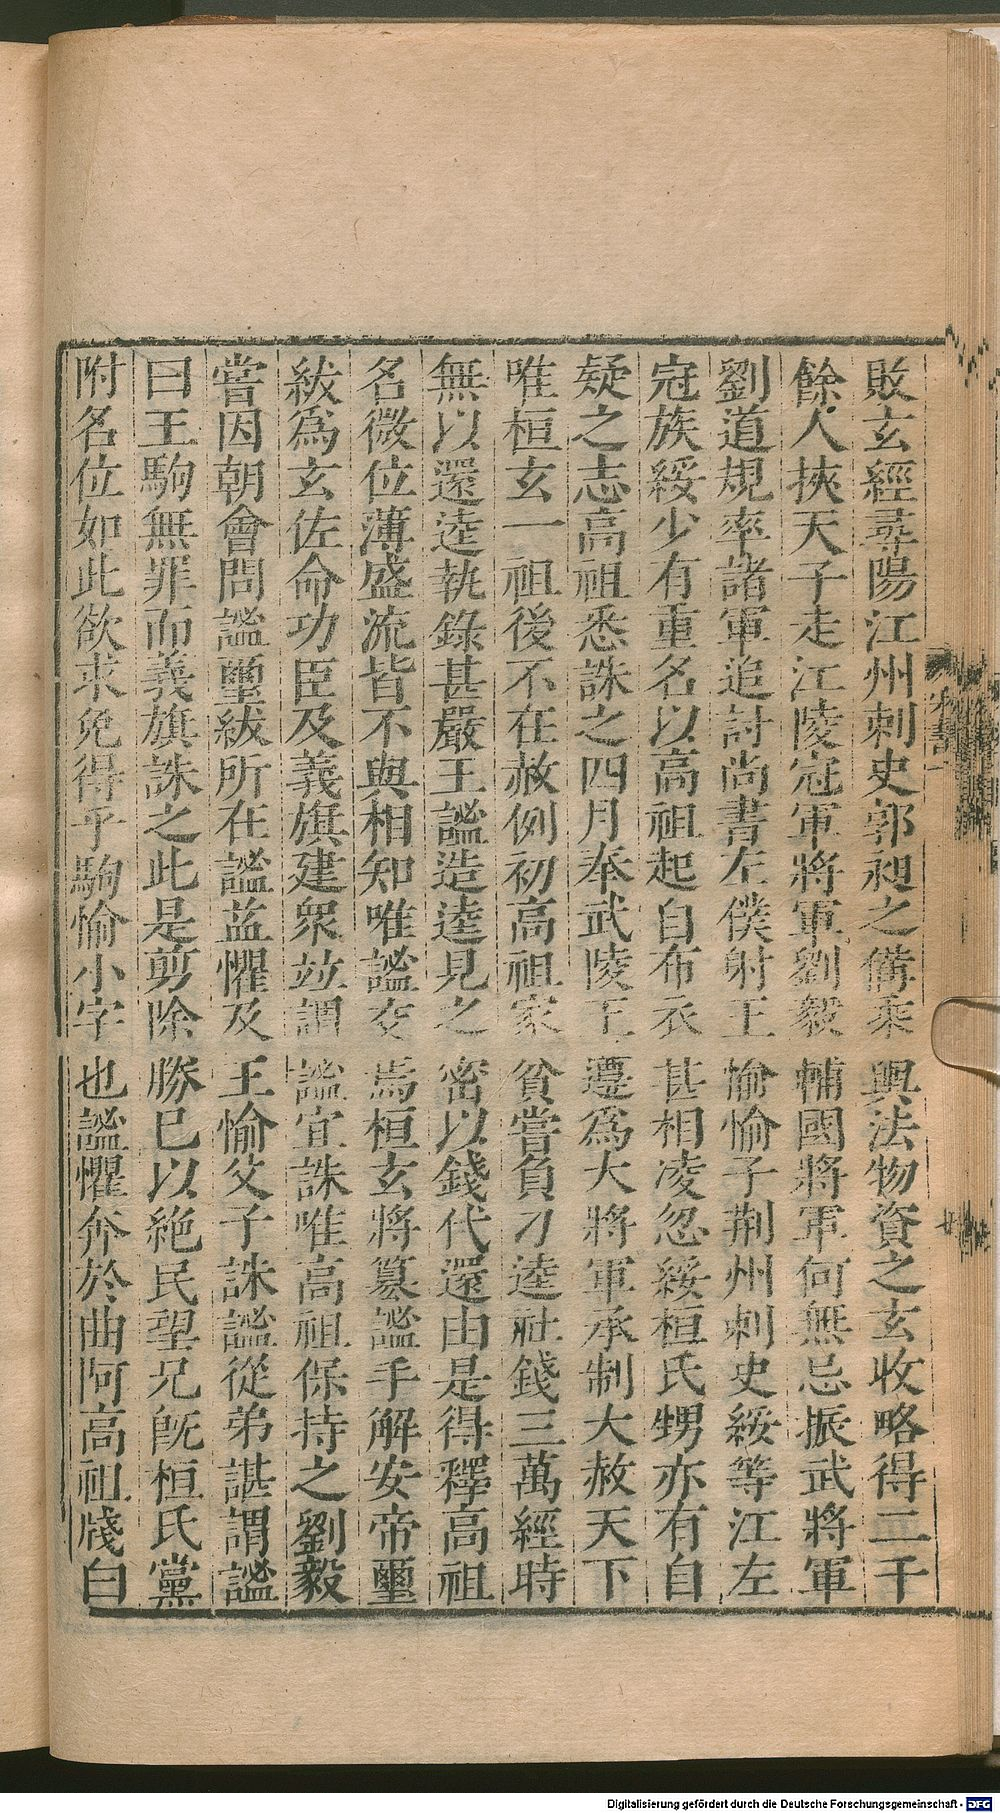 敗玄經尋陽江州刺史郭昶之備乘輿法物資之玄收略得二千
餘人挾天子走江陵冠軍將軍劉毅輔國將軍何無忌振武將軍
劉道規率諸軍追討尚書左僕射王愉愉子荆州刺史綏等江左
冠族綏少有重名以高祖起自布衣甚相凌忽綏桓氏甥亦有自
疑之志高祖悉誅之四月奉武陵王遵爲大將軍承制大赦天下
唯桓玄一祖後不在赦例初高祖家貧嘗負刁逵社錢三萬經時
無以還逵執錄甚嚴王謐造逵見之密以錢代還由是得釋高祖
名微位薄盛流皆不與相知唯謐交焉桓玄將篡謐手解安帝璽
紱爲玄佐命功臣及義旗建衆竝謂謐宜誅唯高祖保持之劉毅
嘗因朝會問謐璽紱所在謐益懼及王愉父子誅謐從弟諶謂謐
曰王駒無罪而義旗誅之此是剪除勝已以絶民望兄旣桓氏黨
附名位如此欲求免得乎駒愉小字也謐懼奔於曲阿高祖牋白
宋書一
廿
Digitalisierung gefördert durch die Deutsche Forschungsgemeinschaft - DFG